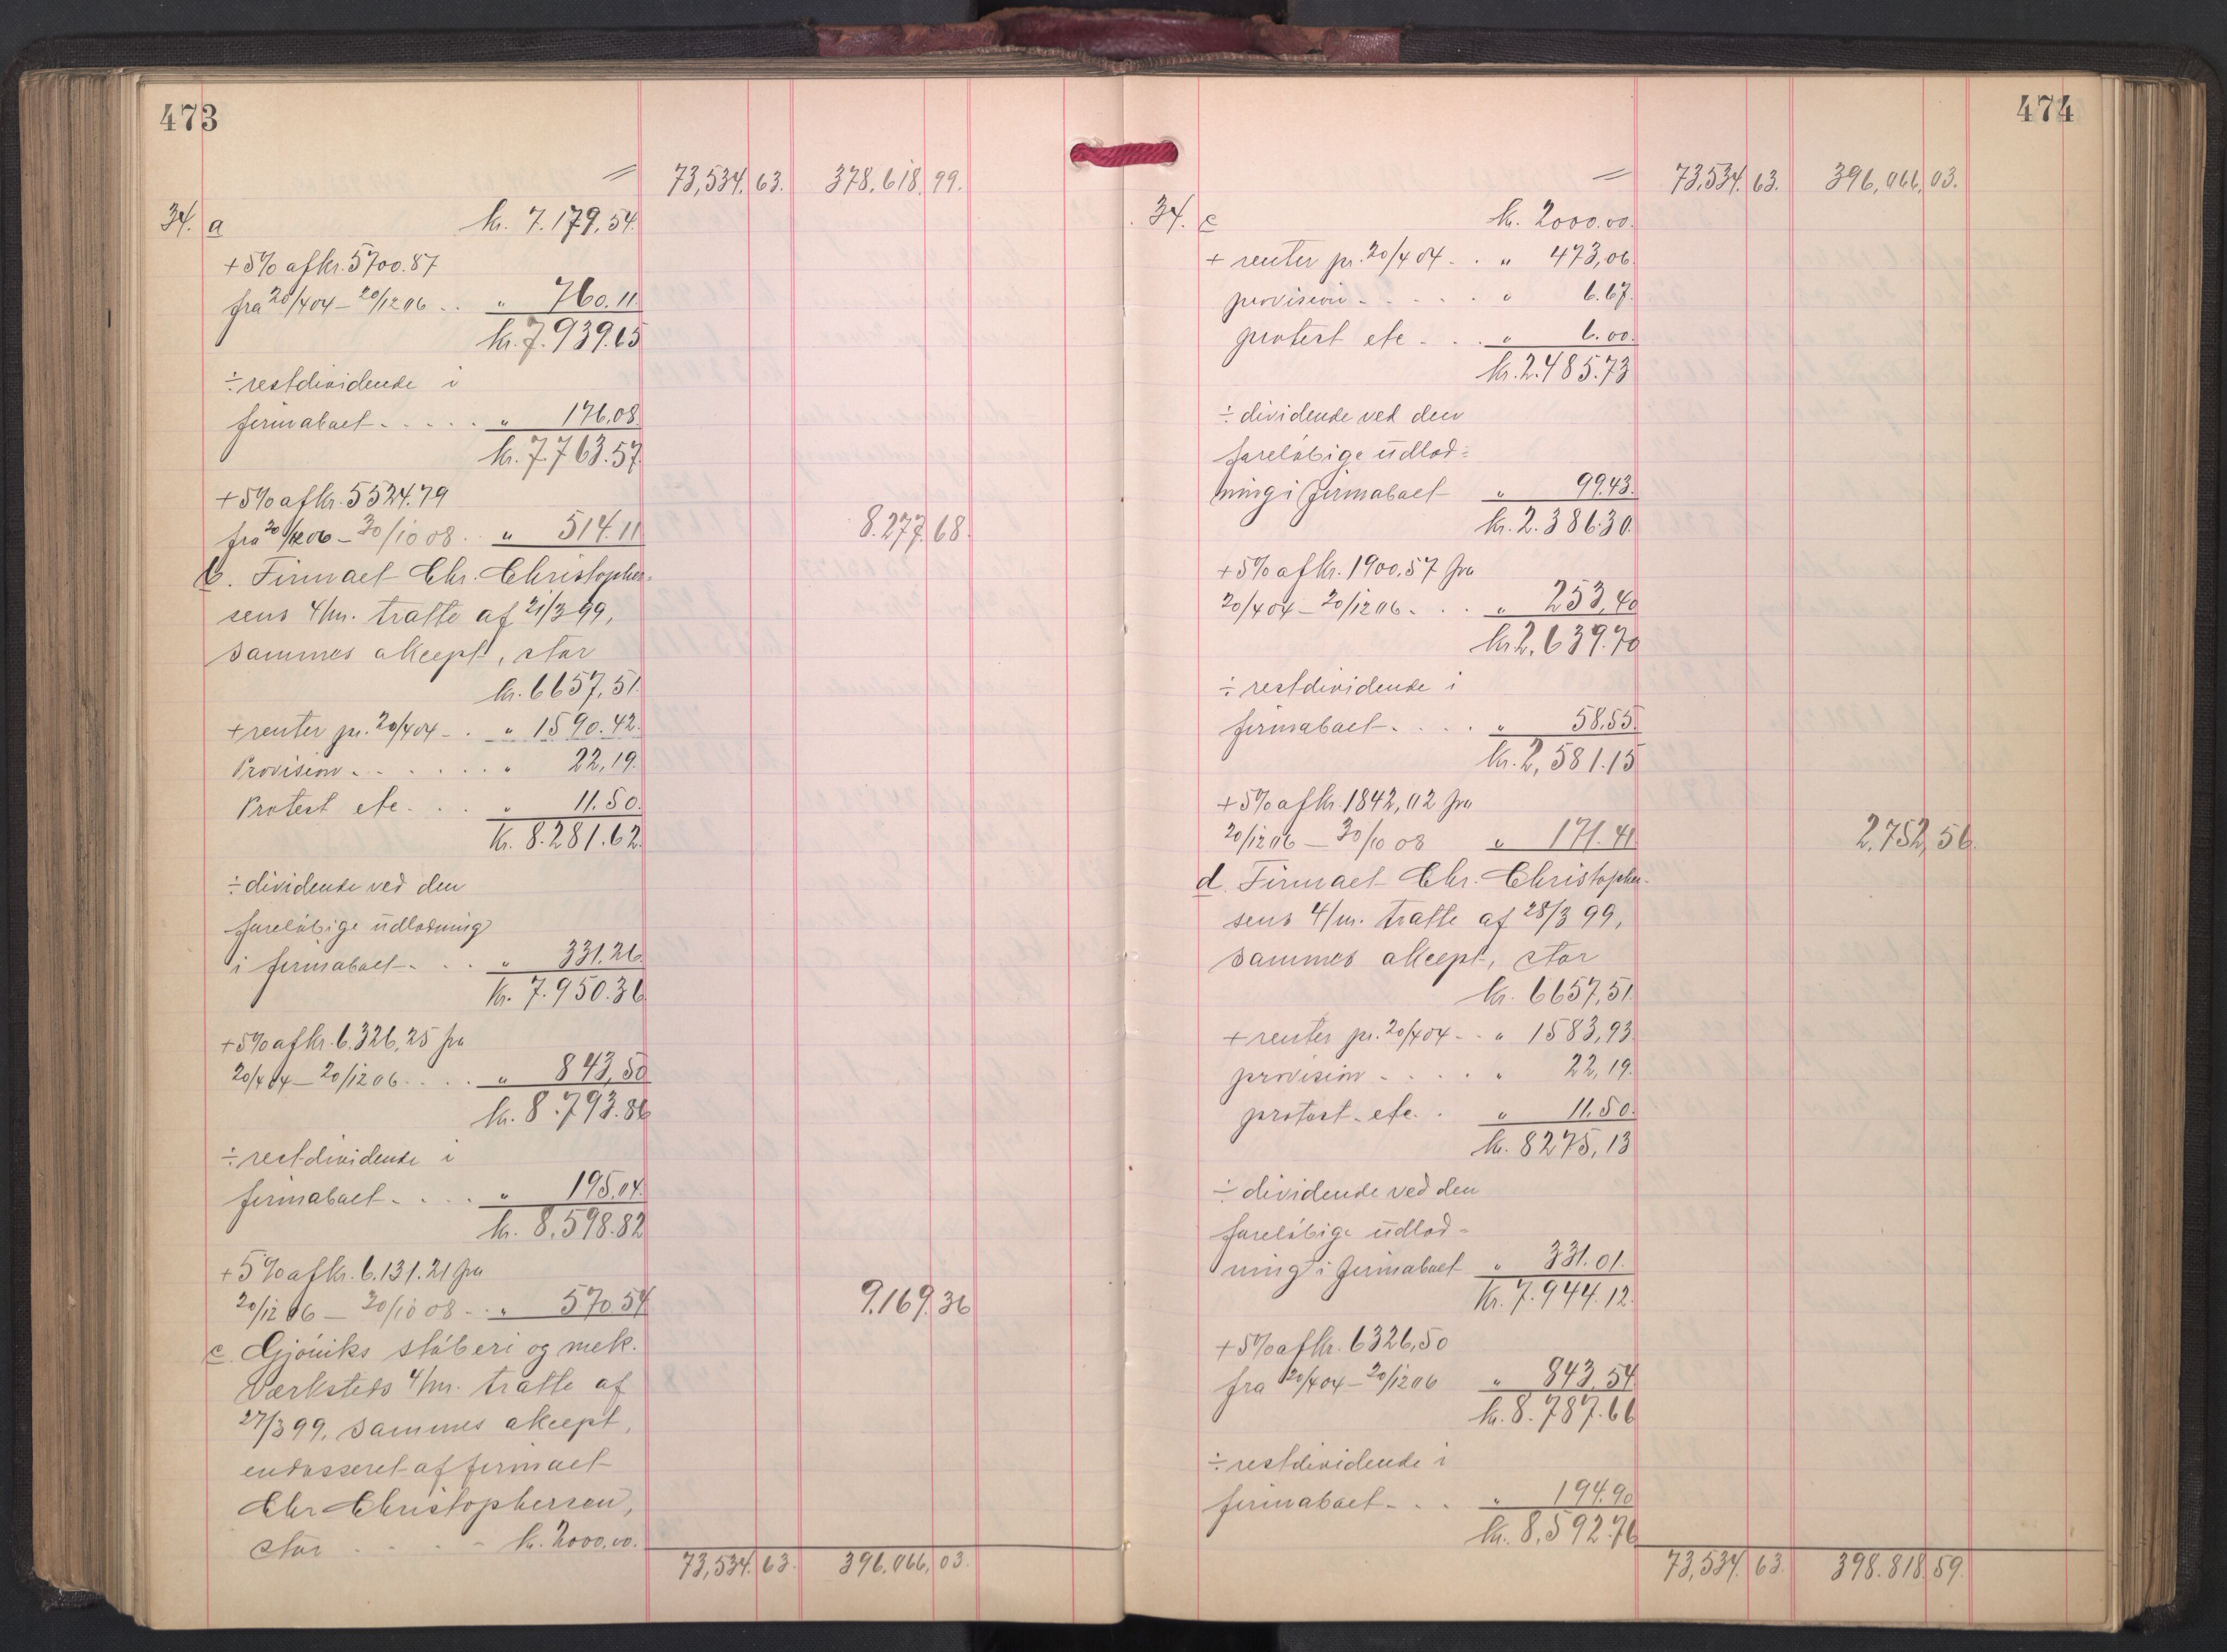 473
= 73,534.63. 378.618.99.
34. a kr. 7.179,54.
+5% af kr. 5700.87
fra 20/4 04 – 20/12 06 . . " 760.11
kr. 7.939.65
÷ restdividende i
firmaboet . . . . . " 176.08
kr. 7.763.57
+5% af kr. 5524.79
fra 20/12 06 – 30/10 08 . . " 514.11 8.277.68.
b. Firmaet Chr. Christopher-
sens 4/m. tratte af 21/3 99,
sammes akcept, stor
kr. 6657,51.
+ renter pr. 20/4 04 – . " 1590.42.
Provision . . . . . . . " 22,19.
Protest etc . . . " 11.50.
kr. 8.281.62.
÷ dividende ved den
foreløbige udlodning
i firmaboet . . . " 331.26.
kr. 7.950.36
+5% af kr. 6.326,25 fra
20/4 04 – 20/12 06 . . . . " 843,50
kr. 8.793.86
÷ restdividende i
firmaboet . . . . " 195.04.
kr. 8.598.82
+5% af kr. 6.131.21 fra
20/12 06 – 30/10 08 – . . " 570.54 9.169.36
c. Gjöviks støberi og mek.
Værksteds 4/m. tratte af
27/3 99, sammes akcept,
endosseret af firmaet
Chr Christophersen,
stor . . . . – kr. 2000,00.
73,534.63. 396.066,03.
474
= 73,534.63. 396,066,03.
34. c kr. 2000.00.
+ renter pr. 20/4 04 – . " 473,06.
provision . . . . . " 6.67.
protest etc . . . " 6.00.
kr. 2.485.73
÷ dividende ved den
foreløbige udlod=
ning i firmaboet " 99.43.
kr. 2.386.30.
+5% af kr. 1900,57 fra
20/4 04 – 20/12 06 . . . " 253,40
kr. 2,639.70
÷ restdividende i
firmaboet . . . . " 58.55.
kr. 2,581.15
+5% af kr 1842,02 fra
20/12 06 – 30/10 08 " 171.41 2.752,56.
d. Firmaet Chr. Christopher-
sens 4/m. tratte af 28/3 99,
sammes akcept, stor
kr. 6657,51.
+ renter pr. 20/4 04 – . " 1583,93.
provision . . . . . " 22,19.
protest etc. . " 11.50.
kr. 8275,13
÷ dividende ved den
foreløbige udlod-
ning i firmaboet " 331.01.
kr. 7.944.12.
+5% af kr. 6326,50
fra 20/4 04 – 20/12 06 " 843,54
kr. 8.787.66
÷ restdividende i
firmaboet . . . " 194.90
kr. 8.592.76
73,534.63. 398.818.59.